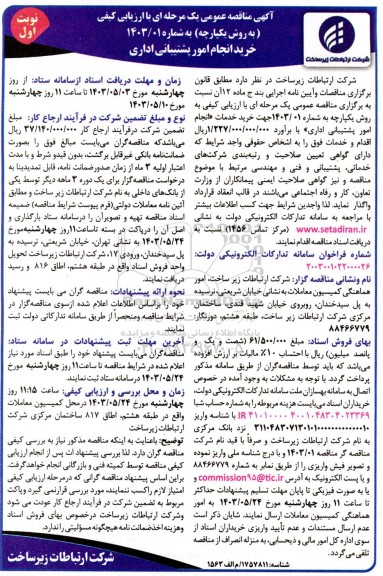 آگهی مناقصه عمومی یک مرحله ای با ارزیابی کیفی
( به روش یکپارچه) به شماره ۱۴۰۳/۰۱
خرید انجام امور پشتیبانی اداری
نوبت اول
شرکت ارتباطات زیرساخت
شرکت ارتباطات زیرساخت در نظر دارد مطابق قانون
برگزاری مناقصات و آیین نامه اجرایی بند ج ماده ۱۲ آن نسبت
به برگزاری مناقصه عمومی یک مرحله ای با ارزیابی کیفی به
روش یکپارچه به شماره ۱۴۰۳/۰۱ جهت خرید خدمات «انجام
امور پشتیبانی اداری» با برآورد ۱/۲۲۷/۰۰۰/۰۰۰/۰۰۰ ریال
اقدام و خدمات فوق را به اشخاص حقوقی واجد شرایط که
دارای گواهی تعیین صلاحیت و رتبه‌بندی شرکت‌های
خدماتی، پشتیبانی و فنی و مهندسی مرتبط با موضوع
مناقصه و نیز گواهی صلاحیت ایمنی پیمانکاران از وزارت
تعاون، کار و رفاه اجتماعی می‌باشند در قالب انعقاد قرارداد
واگذار نماید. لذا واجدین شرایط جهت کسب اطلاعات بیشتر
با مراجعه به سامانه تدارکات الکترونیکی دولت به نشانی
www.setadiran.ir (مرکز تماس ۱۴۵۶) نسبت به
دریافت اسناد مناقصه اقدام نمایند.
شماره فراخوان سامانه تدارکات الکترونیکی دولت:
۲۰۰۳۰۰۱۰۲۲۰۰۰۰۲۶
نام ونشانی مناقصه گزار: شرکت ارتباطات زیر ساخت، امور
هماهنگی کمیسیون معاملات به نشانی خیابان شریعتی، نرسیده
به پل سیدخندان، روبروی خیابان شهید قندی، ساختمان
مرکزی شرکت ارتباطات زیر ساخت، طبقه هشتم، دورنگار:
۸۸۴۶۶۷۷۹
بهای فروش اسناد: مبلغ ۶۱/۵۰۰/۰۰۰ (شصت و یک و
پانصد میلیون) ریال با احتساب ۱۰٪ مالیات بر ارزش افزوده
می‌باشد که باید توسط مناقصه‌گران از طریق سامانه مذکور
پرداخت گردد. با توجه به مشکلات به وجود آمده در خصوص
اتصال به سامانه بهسازان ملت سامانه تدارکات الکترونیکی دولت،
خریداران اسناد می‌بایست هزینه مربوطه را به شماره حساب شبا
با شناسه واریز
نزد بانک مرکزی
به نام شرکت ارتباطات زیرساخت و صرفاً با قید نام شرکت
مناقصه گر مناقصه ۱۴۰۳/۰۱ و با درج شناسه ملی واریز نموده
و تصویر فیش واریزی را از طریق نمابر به شماره ۸۸۴۶۶۷۷۹
و یا پست الکترونیک به آدرس commission95@tic.ir و
یا به صورت فیزیکی تا پایان مهلت تسلیم پیشنهادات حداکثر
تا ساعت ۱۱ روز چهارشنبه مورخ ۱۴۰۳/۰۵/۲۴ به امور
هماهنگی کمیسیون معاملات ارسال نمایند. شایان ذکر است
عدم ارسال مستندات و عدم تأیید واریزی خریداران اسناد از
سوی اداره کل امور مالی و ذیحسابی، به منزله انصراف از مناقصه
تلقی می‌گردد.
زمان و مهلت دریافت اسناد ازسامانه ستاد: از روز
چهارشنبه مورخ ۱۴۰۳/۰۵/۰۳ تا ساعت ۱۱ روز چهارشنبه
مورخ ۱۴۰۳/۰۵/۱۰
نوع و مبلغ تضمین شرکت در فرآیند ارجاع کار: مبلغ
تضمین شرکت درفرآیند ارجاع کار ۳۷/۱۴۰/۰۰۰/۰۰۰ ریال
می‌باشد که مناقصه‌گران می‌بایست مبالغ فوق را بصورت
ضمانت‌نامه بانکی غیرقابل برگشت، بدون قید و شرط و با مدت
اعتبار اولیه ۳ ماه از زمان صدور ضمانت نامه، قابل تمدید بنا به
درخواست مناقصه گزار برای یک دوره ۳ ماهه دیگر توسط یکی
از بانک‌های داخلی به نام شرکت ارتباطات زیر ساخت و مطابق
آئین نامه معاملات دولتی(فرم پیوست شرایط مناقصه) ضمیمه
اسناد مناقصه تهیه و تصویرآن را درسامانه ستاد بارگذاری و
اصل آن را درپاکت در بسته تاساعت ۱۱ روز چهارشنبه مورخ
۱۴۰۳/۰۵/۲۴ به نشانی تهران، خیابان شریعتی، نرسیده به
پل سیدخندان، ورودی ۱۷، شرکت ارتباطات زیرساخت تحویل
واحد فروش اسناد واقع در طبقه هشتم، اطاق ۸۱۶ و رسید
دریافت نمایند.
نحوه ارائه پیشنهادات: مناقصه گران می بایست پیشنهاد
خود را براساس اطلاعات اعلام شده ازسوی مناقصه‌گزار در
شرایط مناقصه ومنحصراً از طریق سامانه تدارکاتی دولت ثبت
نمایند.
آخرین مهلت ثبت پیشنهادات در سامانه ستاد:
مناقصه‌گران می‌بایست پیشنهاد خود را طبق اسناد مورد نیاز
اعلام شده در شرایط مناقصه تا ساعت ۱۱ روز چهارشنبه مورخ
۱۴۰۳/۰۵/۲۴ درسامانه ستاد ثبت نمایند.
زمان و محل بررسی و ارزیابی کیفی: ساعت ۱۱:۱۵ روز
چهارشنبه مورخ ۱۴۰۳/۰۵/۲۴ در محل کمیسیون معاملات
واقع در طبقه هشتم، اطاق ۸۱۷ ساختمان مرکزی شرکت
ارتباطات زیرساخت
توضیح: باعنایت به اینکه مناقصه مذکور نیاز به بررسی کیفی
مناقصه گران دارد، لذا بررسی پیشنهادات پس از انجام ارزیابی
کیفی مناقصه گران توسط کمیته فنی و بازرگانی انجام خواهدگرفت.
براین اساس پیشنهاد مناقصه گرانی که درمرحله ارزیابی کیفی
امتیاز لازم را کسب ننمایند، مورد بررسی قرارنمی گیرد و پاکت
مربوط به تضمین شرکت در فرآیند ارجاع کار عودت می شود
و شرکت ارتباطات زیرساخت درخصوص بهای فروش اسناد
وهزینه اخذ ضمانت نامه هیچگونه مسؤلیتی را ندارد.
شناسه: ۱۷۵۷۸۱۱/م الف ۱۵۶۳
شرکت ارتباطات زیرساخت